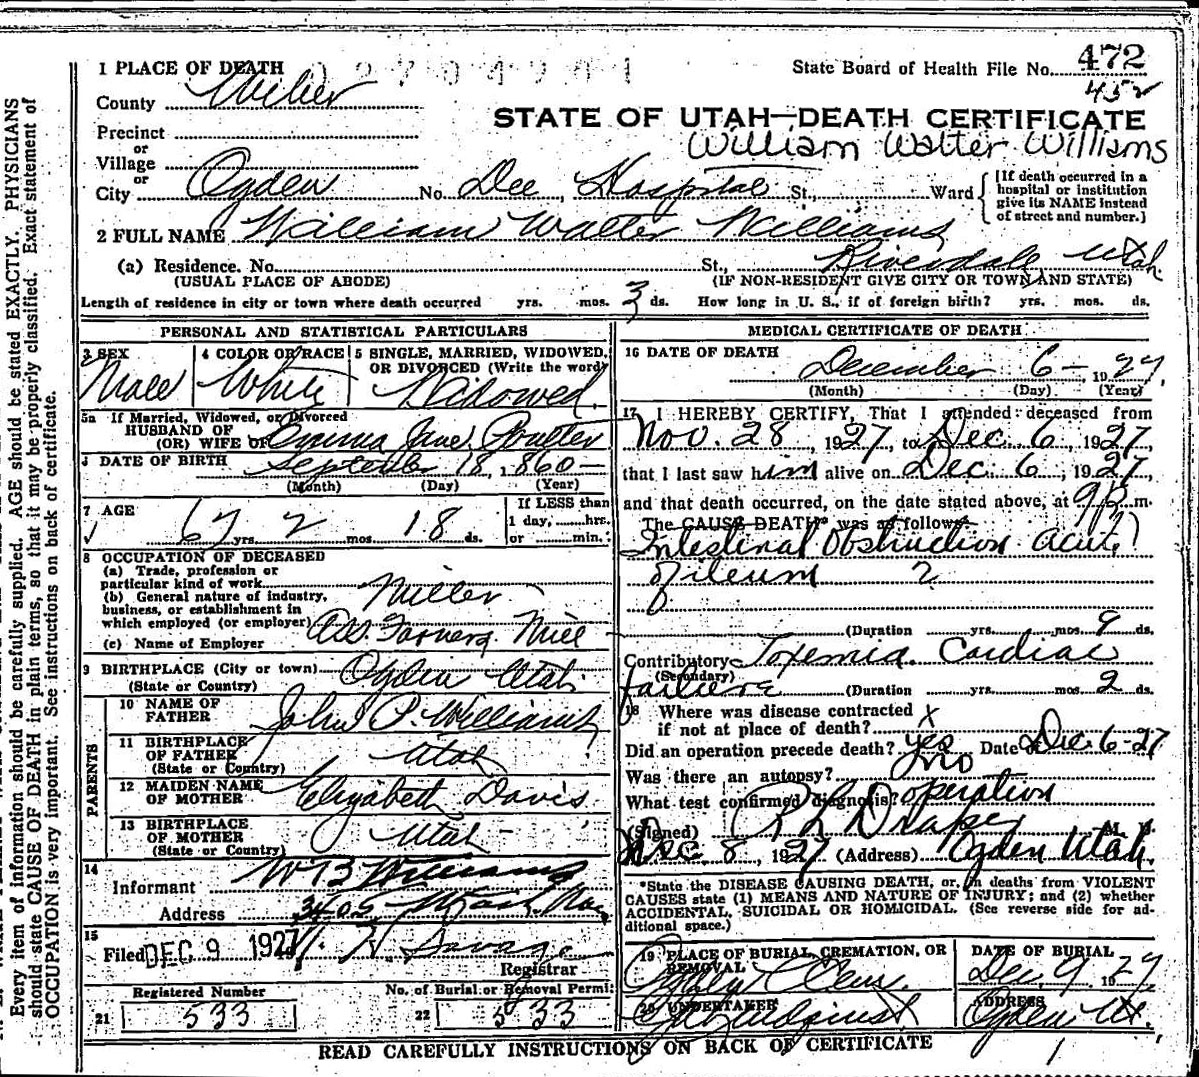 1 PLACE OF DEATH
State Board of Health File No. 472
452
County Weber
STATE OF UTAH—DEATH CERTIFICATE
Precinct
William Walter Williams
or
Village
or
City Ogden No. Dee Hospital St., Ward
[If death occurred in a
hospital or institution
give its NAME instead
of street and number.]
2 FULL NAME William Walter Williams
(a) Residence. No. St., Riverdale Utah
(USUAL PLACE OF ABODE) (IF NON-RESIDENT GIVE CITY OR TOWN AND STATE)
Length of residence in city or town where death occurred yrs. mos. 3 ds. How long in U. S., if of foreign birth? yrs. mos. ds.
PERSONAL AND STATISTICAL PARTICULARS
3 SEX
Male
4 COLOR OR RACE
White
5 SINGLE, MARRIED, WIDOWED,
OR DIVORCED (Write the word)
Widowed
5a If Married, Widowed, or Divorced
HUSBAND OF
(OR) WIFE OF Emma Jane Poulter
DATE OF BIRTH September 18, 1860
(Month) (Day) (Year)
7 AGE
67 yrs. 2 mos. 18 ds.
If LESS than
1 day, hrs.
or min.
8 OCCUPATION OF DECEASED
(a) Trade, profession or
particular kind of work Miller
(b) General nature of industry,
business, or establishment in
which employed (or employer)
(c) Name of Employer
9 BIRTHPLACE (City or town) Ogden Utah
(State or Country)
PARENTS
10 NAME OF
FATHER John P. Williams
11 BIRTHPLACE
OF FATHER Utah
(State or Country)
12 MAIDEN NAME
OF MOTHER Elizabeth Davis
13 BIRTHPLACE
OF MOTHER Utah
(State or Country)
14
Informant W B Williams
Address 3405 Wash. Ave
15
Filed DEC 9 1927 Savage
Registrar
Registered Number
21 533
No. of Burial or Removal Permit
22 533
MEDICAL CERTIFICATE OF DEATH
16 DATE OF DEATH
December 6 — 1927
(Month) (Day) (Year)
17 I HEREBY CERTIFY, That I attended deceased from
Nov. 28, 1927, to Dec. 6, 1927,
that I last saw him alive on Dec 6, 1927,
and that death occurred, on the date stated above, at m.
The CAUSE DEATH* was as follows:
Intestinal Obstruction acute
of ileum
(Duration yrs. mos. 9 ds.
Contributory Toxemia. Cardiac
(Secondary)
failure (Duration yrs. mos. 2 ds.
18 Where was disease contracted
if not at place of death? X
Did an operation precede death? yes Date Dec. 6-27
Was there an autopsy? no
What test confirmed diagnosis? operation
(Signed) R L Draper M. D.
Dec 8, 1927 (Address) Ogden Utah.
*State the DISEASE CAUSING DEATH, or, in deaths from VIOLENT
CAUSES state (1) MEANS AND NATURE OF INJURY; and (2) whether
ACCIDENTAL, SUICIDAL OR HOMICIDAL. (See reverse side for ad-
ditional space.)
19 PLACE OF BURIAL, CREMATION, OR
REMOVAL
Ogden Cem.
DATE OF BURIAL
Dec. 9 1927
20 UNDERTAKER
ADDRESS
Ogden Ut.
READ CAREFULLY INSTRUCTIONS ON BACK OF CERTIFICATE
1
Every item of information should be carefully supplied. AGE should be stated EXACTLY. PHYSICIANS
should state CAUSE OF DEATH in plain terms, so that it may be properly classified. Exact statement of
OCCUPATION is very important. See instructions on back of certificate.